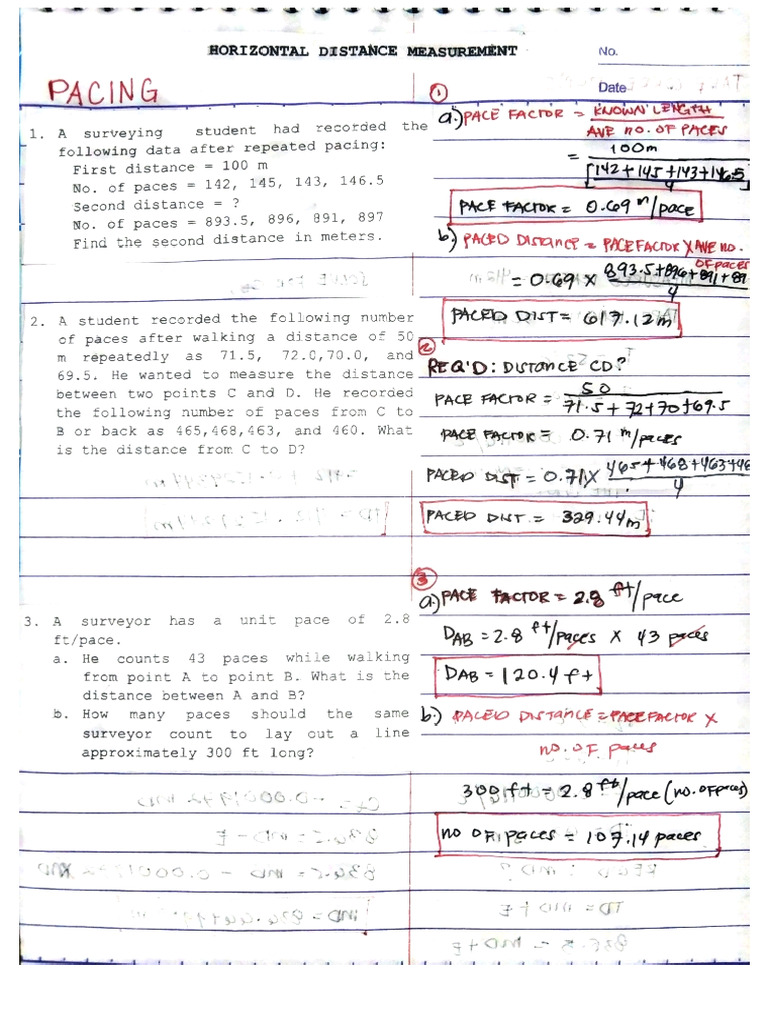 HORIZONTAL DISTANCE MEASUREMENT
No.
Date
PACING
1. A surveying student had recorded the
following data after repeated pacing:
First distance = 100 m
No. of paces = 142, 145, 143, 146.5
Second distance = ?
No. of paces = 893.5, 896, 891, 897
Find the second distance in meters.
2. A student recorded the following number
of paces after walking a distance of 50
m repeatedly as 71.5, 72.0,70.0, and
69.5. He wanted to measure the distance
between two points C and D. He recorded
the following number of paces from C to
B or back as 465,468,463, and 460. What
is the distance from C to D?
3. A surveyor has a unit pace of 2.8
ft/pace.
a. He counts 43 paces while walking
from point A to point B. What is the
distance between A and B?
b. How many paces should the same
surveyor count to lay out a line
approximately 300 ft long?
1
a.) PACE FACTOR = KNOWN LENGTH
AVE NO. OF PACES
= 100m
[142+145+143+146.5
4
PACE FACTOR = 0.69 m/pace
b.) PACED DISTANCE = PACE FACTOR X AVE NO.
OF paces
= 0.69 X 893.5+896+891+89
4
PACED DIST = 617.12m
2
REQ'D: DISTANCE CD?
PACE FACTOR = 50
71.5+72+70+69.5
PACE FACTOR = 0.71 m/paces
PACED DIST = 0.71 X 465+468+463+46
4
PACED DIST = 329.44m
3
a.) PACE FACTOR = 2.8 ft/pace
DAB = 2.8 ft/paces X 43 paces
DAB = 120.4 ft
b.) PACED DISTANCE = PACE FACTOR X
no. OF paces
300 ft = 2.8 ft/pace (no. OF paces)
no OF paces = 107.14 paces